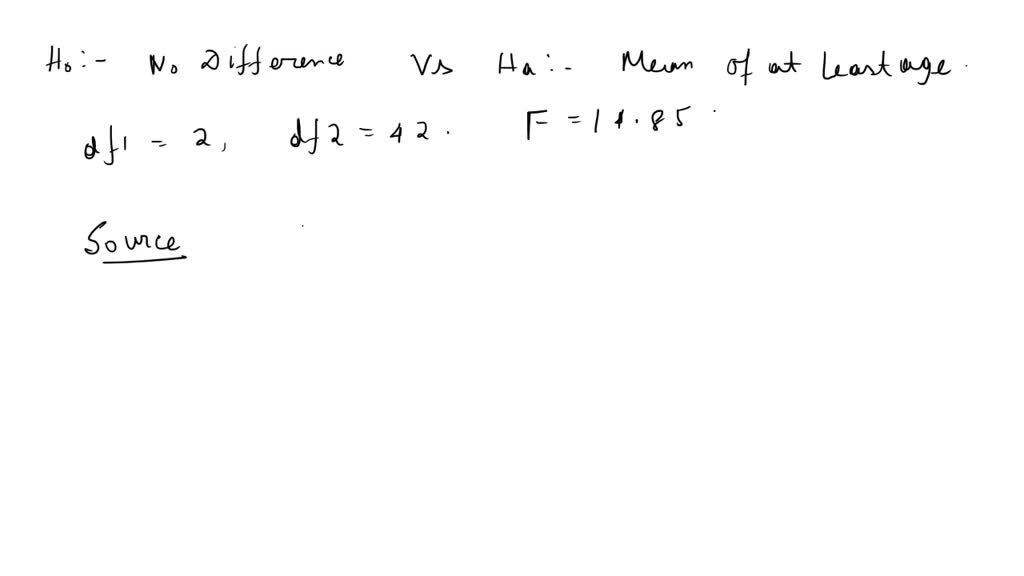 H₀:- No Difference Vs Ha:- Mean of at least age.
df1 = 2, df2 = 42. F = 11.85
Source